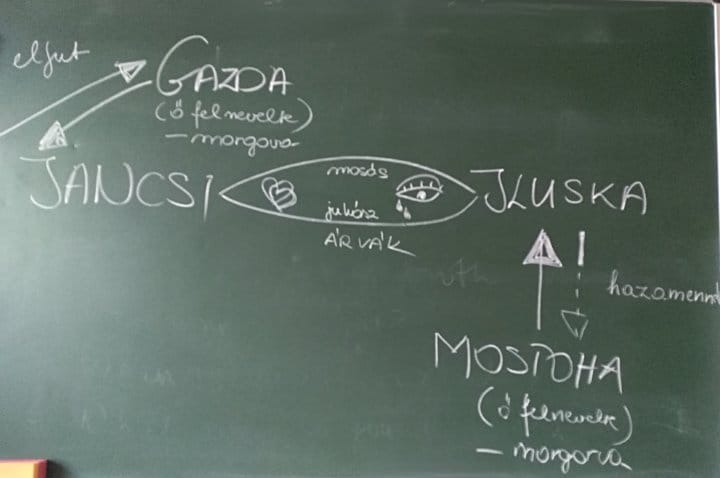 elfut
GAZDA
(ő felnevelte)
– morgova
JANCSI
mosás
juhász
ÁRVÁK
ILUSKA
hazamennt
MOSTOHA
(ő felnevelte)
– morgova